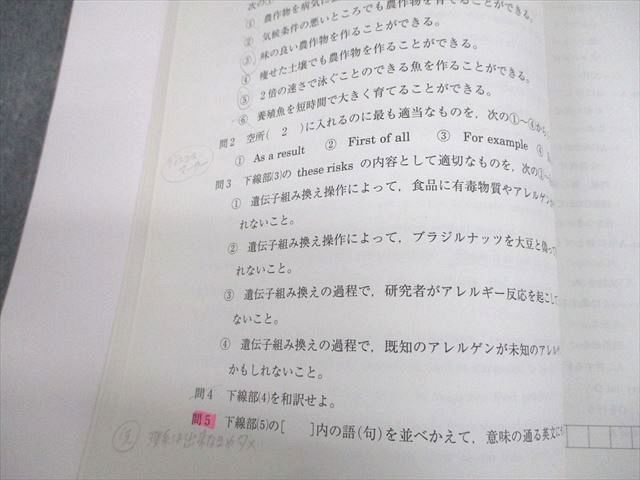 次の
① 農作物を病気に
② 気候条件の悪いところでも農作物を育てることができる。
③ 味の良い農作物を作ることができる。
④ 痩せた土壌でも農作物を作ることができる。
⑤ 2倍の速さで泳ぐことのできる魚を作ることができる。
⑥ 養殖魚を短時間で大きく育てることができる。
問2 空所( 2 )に入れるのに最も適当なものを，次の①〜④から
① As a result ② First of all ③ For example ④
問3 下線部(3)の these risks の内容として適切なものを，次の①〜
① 遺伝子組み換え操作によって，食品に有毒物質やアレルゲン
れないこと。
② 遺伝子組み換え操作によって，ブラジルナッツを大豆と偽って
れないこと。
③ 遺伝子組み換えの過程で，研究者がアレルギー反応を起こして
ないこと。
④ 遺伝子組み換えの過程で，既知のアレルゲンが未知のアレル
かもしれないこと。
問4 下線部(4)を和訳せよ。
問5 下線部(5)の[ ]内の語(句)を並べかえて，意味の通る英文に